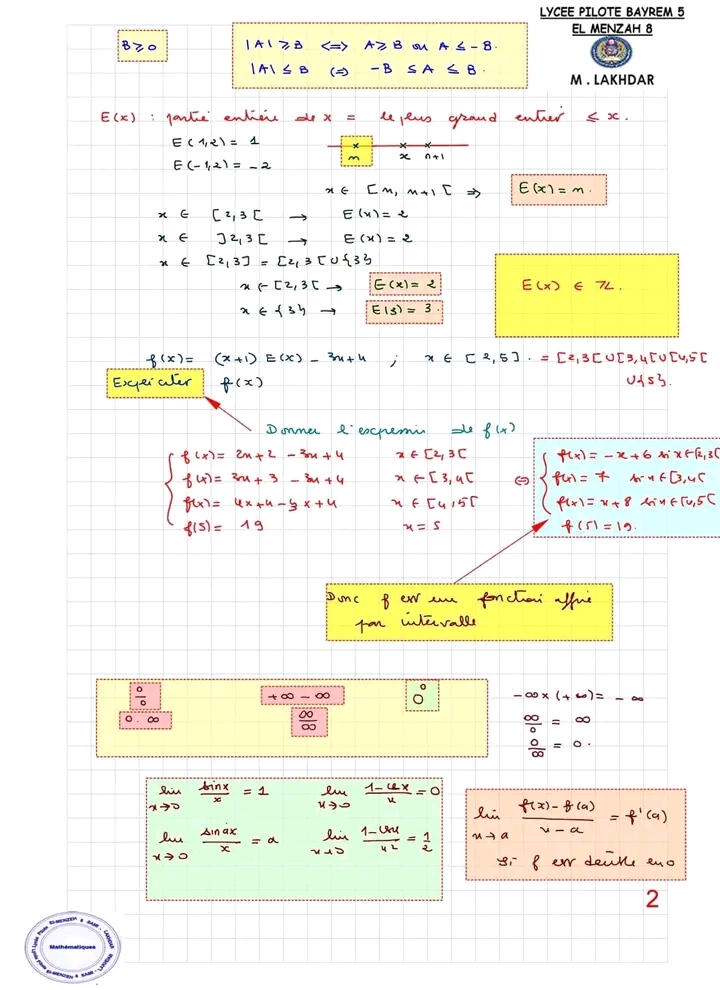 LYCEE PILOTE BAYREM 5
EL MENZAH 8
M . LAKHDAR
B ⩾ 0
|A| ⩾ B <=> A ⩾ B ou A ≤ -B.
|A| ≤ B (=) -B ≤ A ≤ B.
E(x) : partie entière de x = le plus grand entier ≤ x.
E(1,2) = 1
E(-1,2) = -2
n x n+1
x ∈ [n, n+1[ => E(x) = n.
x ∈ [2,3[ → E(x) = 2
x ∈ ]2,3[ → E(x) = 2
x ∈ [2,3] = [2,3[ ∪ {3}
x ∈ [2,3[ → E(x) = 2
x ∈ {3} → E(3) = 3.
E(x) ∈ ℤ.
f(x) = (x+1) E(x) - 3x+4 ; x ∈ [2,5]. = [2,3[ ∪ [3,4[ ∪ [4,5[
∪{5}.
Expliciter f(x)
Donner l'expression de f(x)
f(x) = 2x+2 - 3x+4 x ∈ [2,3[
f(x) = 3x+3 - 3x+4 x ∈ [3,4[
f(x) = 4x+4-3x+4 x ∈ [4,5[
f(5) = 19 x = 5
(=)
f(x) = -x+6 si x ∈ [2,3[
f(x) = 7 si x ∈ [3,4[
f(x) = x+8 si x ∈ [4,5[
f(5) = 19.
Donc f est une fonction affine
par intervalle
0/0 +∞ - ∞ 0⁰
0.∞ ∞/∞
-∞ x (+∞) = -∞
∞/0 = ∞
0/∞ = 0.
lim x→0 sinx/x = 1 lim x→0 1-cosx/x = 0
lim x→0 sin ax/x = a lim x→0 1-cosx/x² = 1/2
lim x→a f(x)-f(a)/x-a = f'(a)
si f est dérible en a
2
Mathématiques